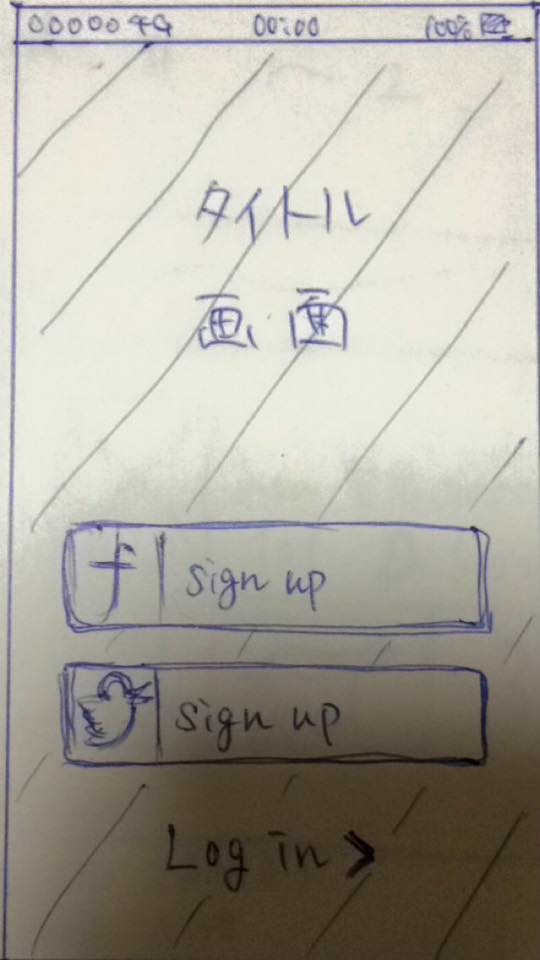 ooooo 4G 00:00 100%
タイトル
画面
f sign up
sign up
Log in >